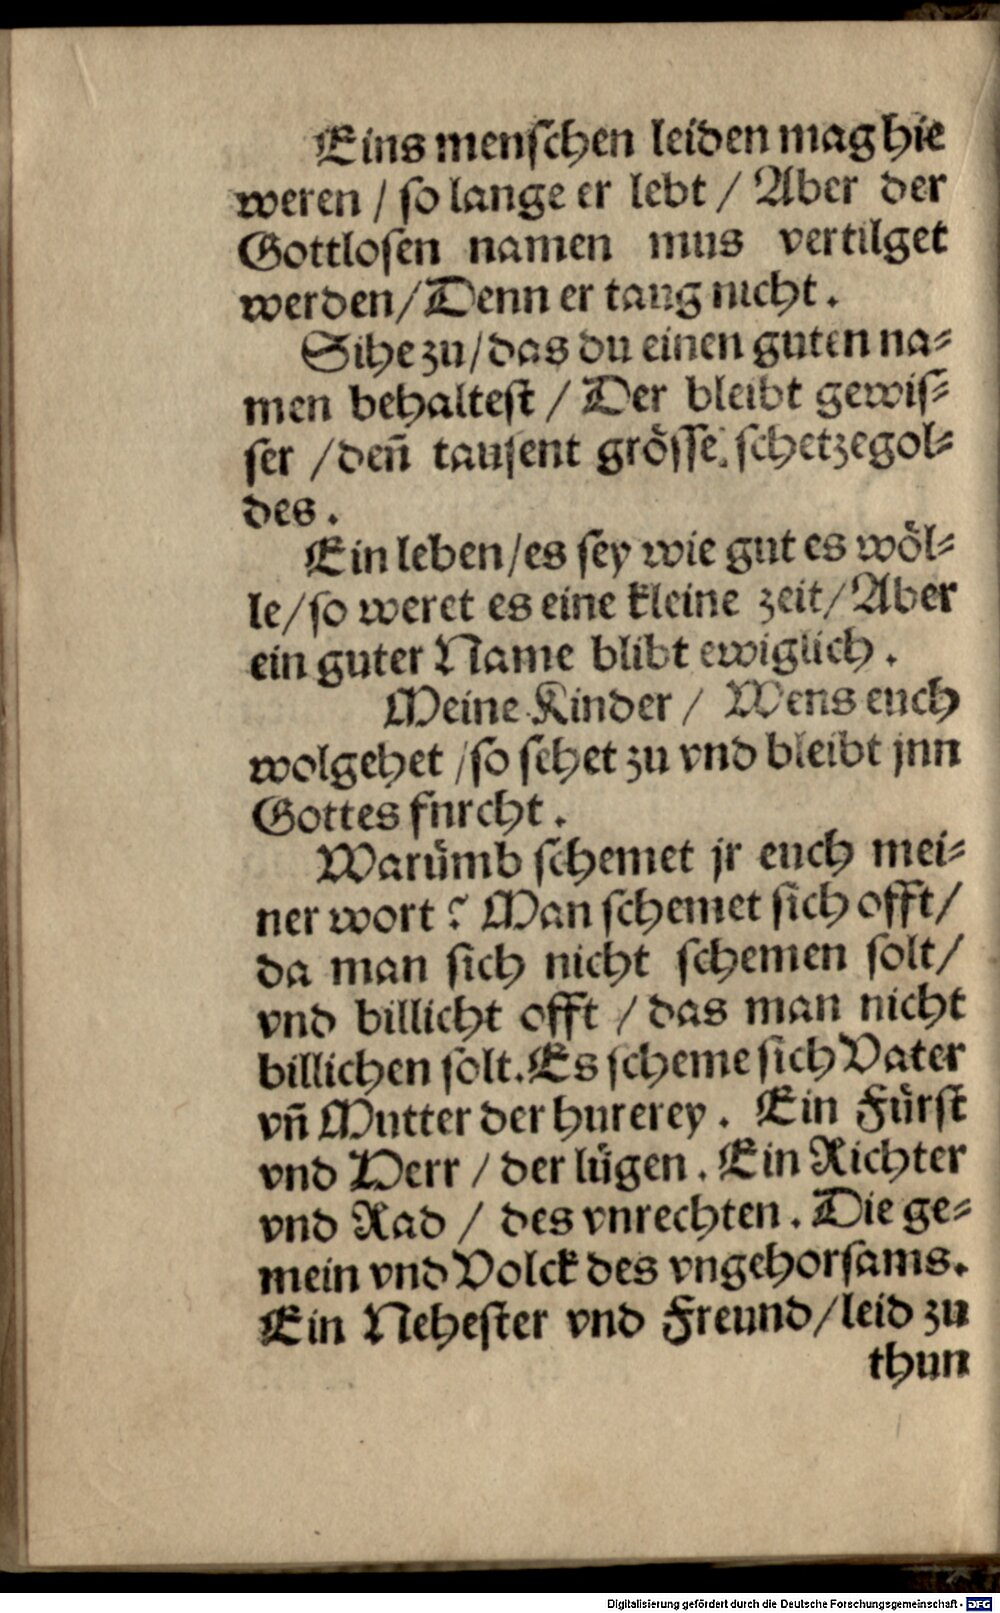 Eins menschen leiden mag hie
weren / so lange er lebt / Aber der
Gottlosen namen mus vertilget
werden / Denn er taug nicht.
Sihe zu / das du einen guten na⸗
men behaltest / Der bleibt gewis⸗
ser / deñ tausent grösse schetze gol⸗
des.
Ein leben / es sey wie gut es wöl⸗
le / so weret es eine kleine zeit / Aber
ein guter Name blibt ewiglich.
Meine Kinder / Wens euch
wolgehet / so sehet zu vnd bleibt jnn
Gottes furcht.
Warümb schemet jr euch mei⸗
ner wort? Man schemet sich offt /
da man sich nicht schemen solt /
vnd billicht offt / das man nicht
billichen solt. Es scheme sich Vater
vñ Mutter der hurerey. Ein Fürst
vnd Herr / der lügen. Ein Richter
vnd Rad / des vnrechten. Die ge⸗
mein vnd Volck des vngehorsams.
Ein Nehester vnd Freund / leid zu
thun
Digitalisierung gefördert durch die Deutsche Forschungsgemeinschaft - DFG